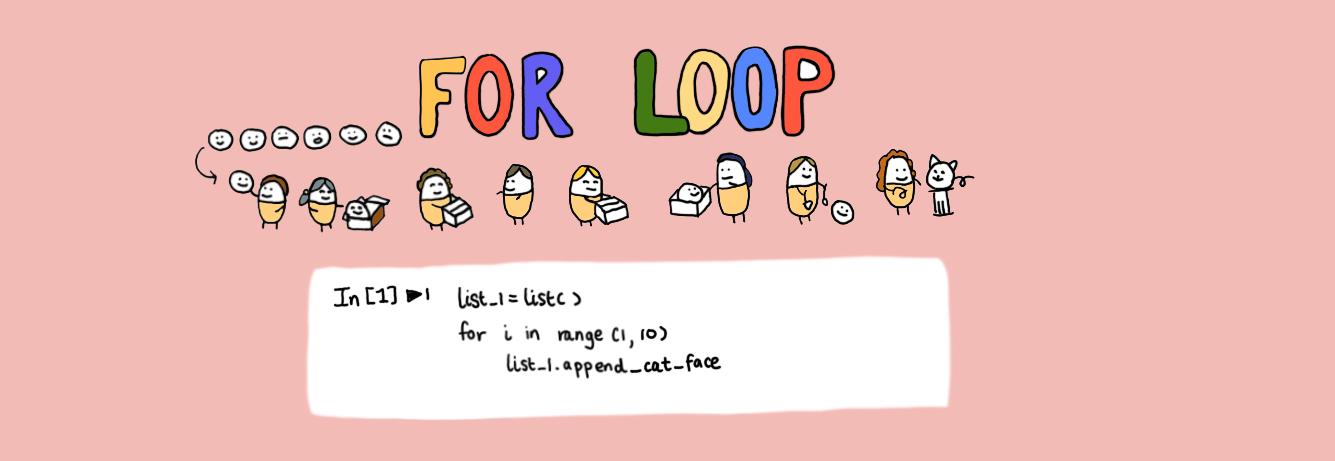 FOR LOOP
In [1] ▶| list_1 = list( )
for i in range (1, 10)
list_1.append_cat_face